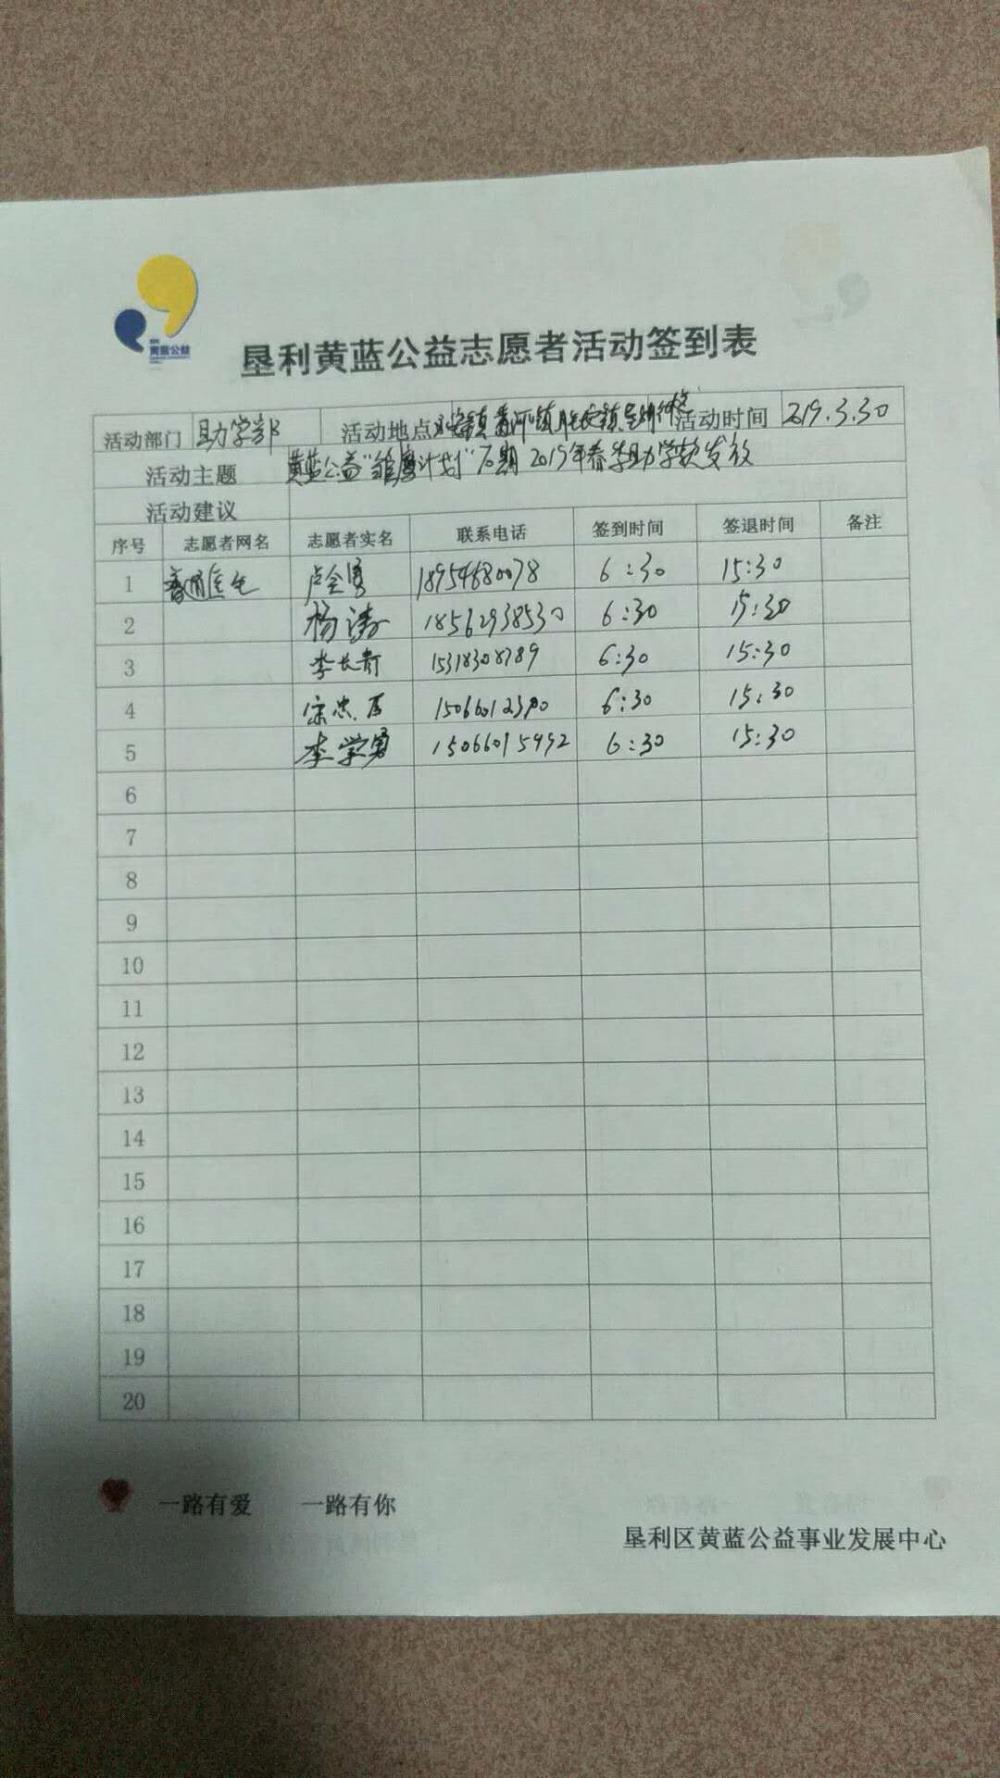 黄蓝公益
垦利黄蓝公益志愿者活动签到表
活动部门 助学部 活动地点 活动时间 2019.3.30
活动主题 黄蓝公益"雏鹰计划" 2019年春季助学款发放
活动建议
序号 志愿者网名 志愿者实名 联系电话 签到时间 签退时间 备注
1 18954680078 6:30 15:30
2 杨涛 18562938530 6:30 15:30
3 李长青 15318308789 6:30 15:30
4 6:30 15:30
5 李学勇 15066015992 6:30 15:30
6
7
8
9
10
11
12
13
14
15
16
17
18
19
20
一路有爱 一路有你
垦利区黄蓝公益事业发展中心